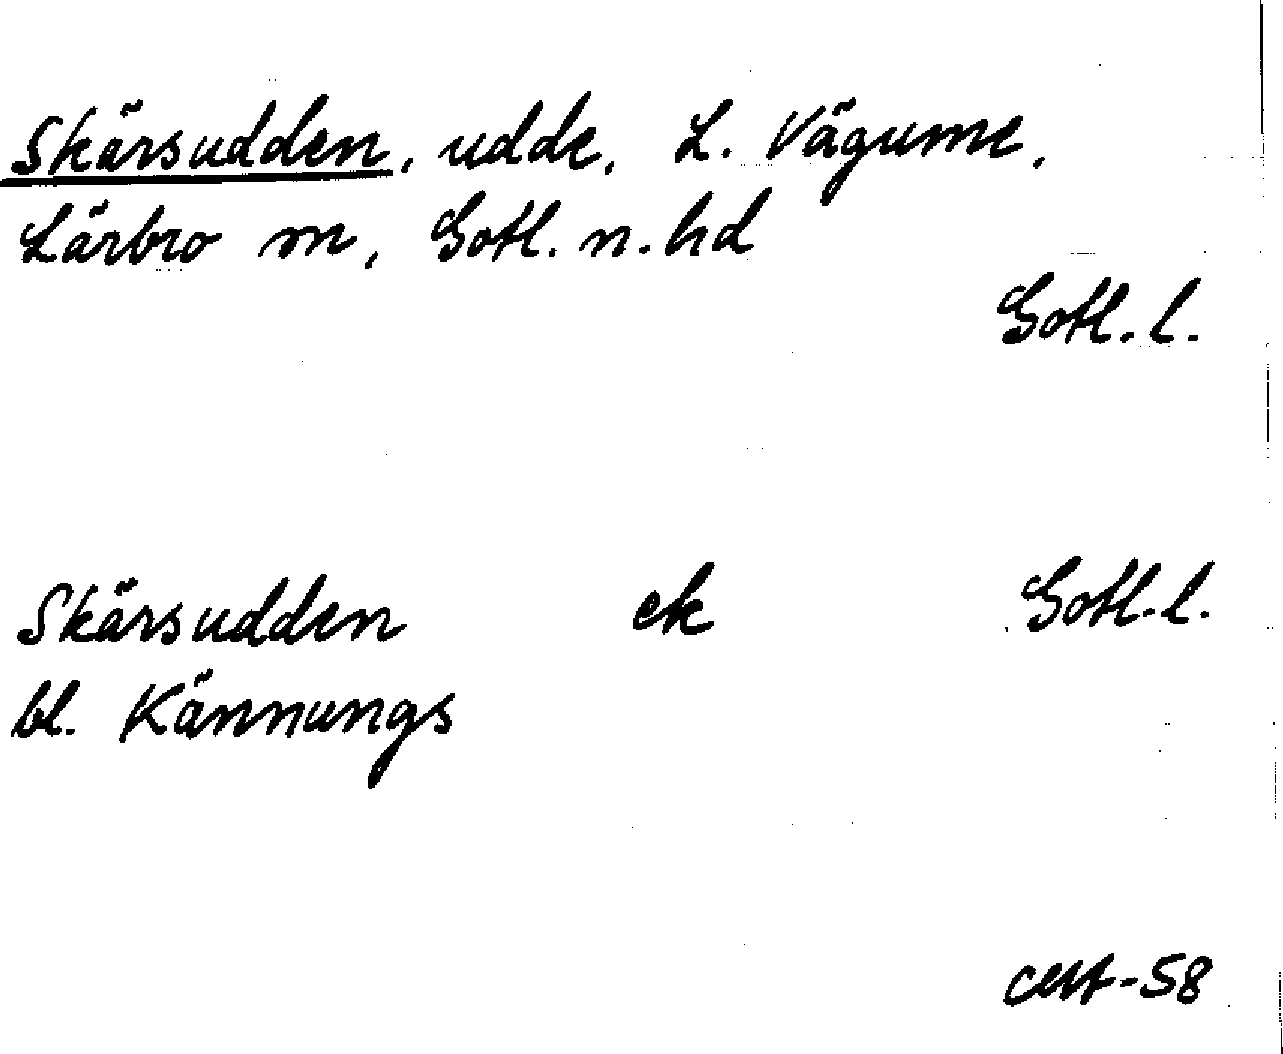 Skärsudden, udde, L. Vägume,
Lärbro sn, Gotl. n. hd
Gotl. l.
Skärsudden ek Gotl. l.
bl. Kännungs
-58